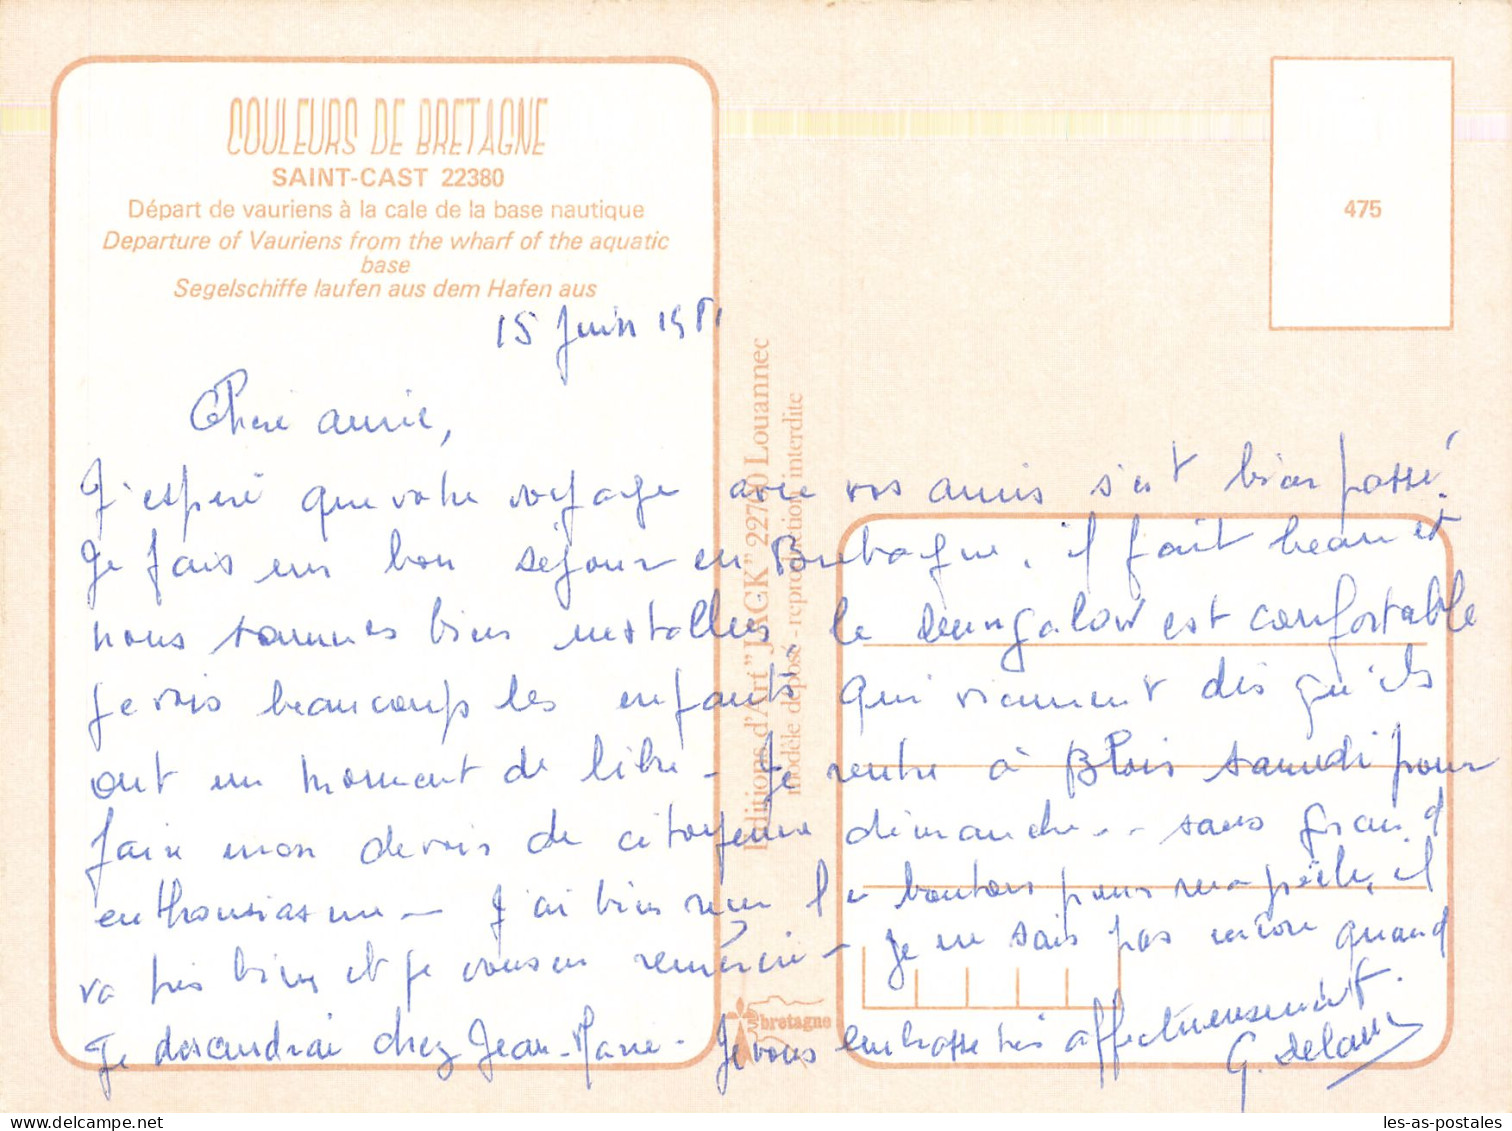 COULEURS DE BRETAGNE
SAINT-CAST 22380
Départ de vauriens à la cale de la base nautique
Departure of Vauriens from the wharf of the aquatic
base
Segelschiffe laufen aus dem Hafen aus
475
15 Juin 1981
Chère amie,
J'espère que votre voyage avec vos amis s'est bien passé.
Je fais un bon séjour en Bretagne. il fait beau et
nous sommes bien installées le bungalow est confortable
je vois beaucoup les enfants qui viennent dès qu'ils
ont un moment de libre - Je rentre à Blois samedi pour
faire mon devoir de citoyenne dimanche - - sans grand
enthousiasme - J'ai bien reçu les boutons pour ma pèle, il
va très bien et je vous en remercie - Je ne sais pas encore quand
Je descendrai chez Jean-Marie - Je vous embrasse très affectueusement.
G.
Editions d'Art "JACK" 22700 Louannec
modèle déposé - reproduction interdite
bretagne
les-as-postales